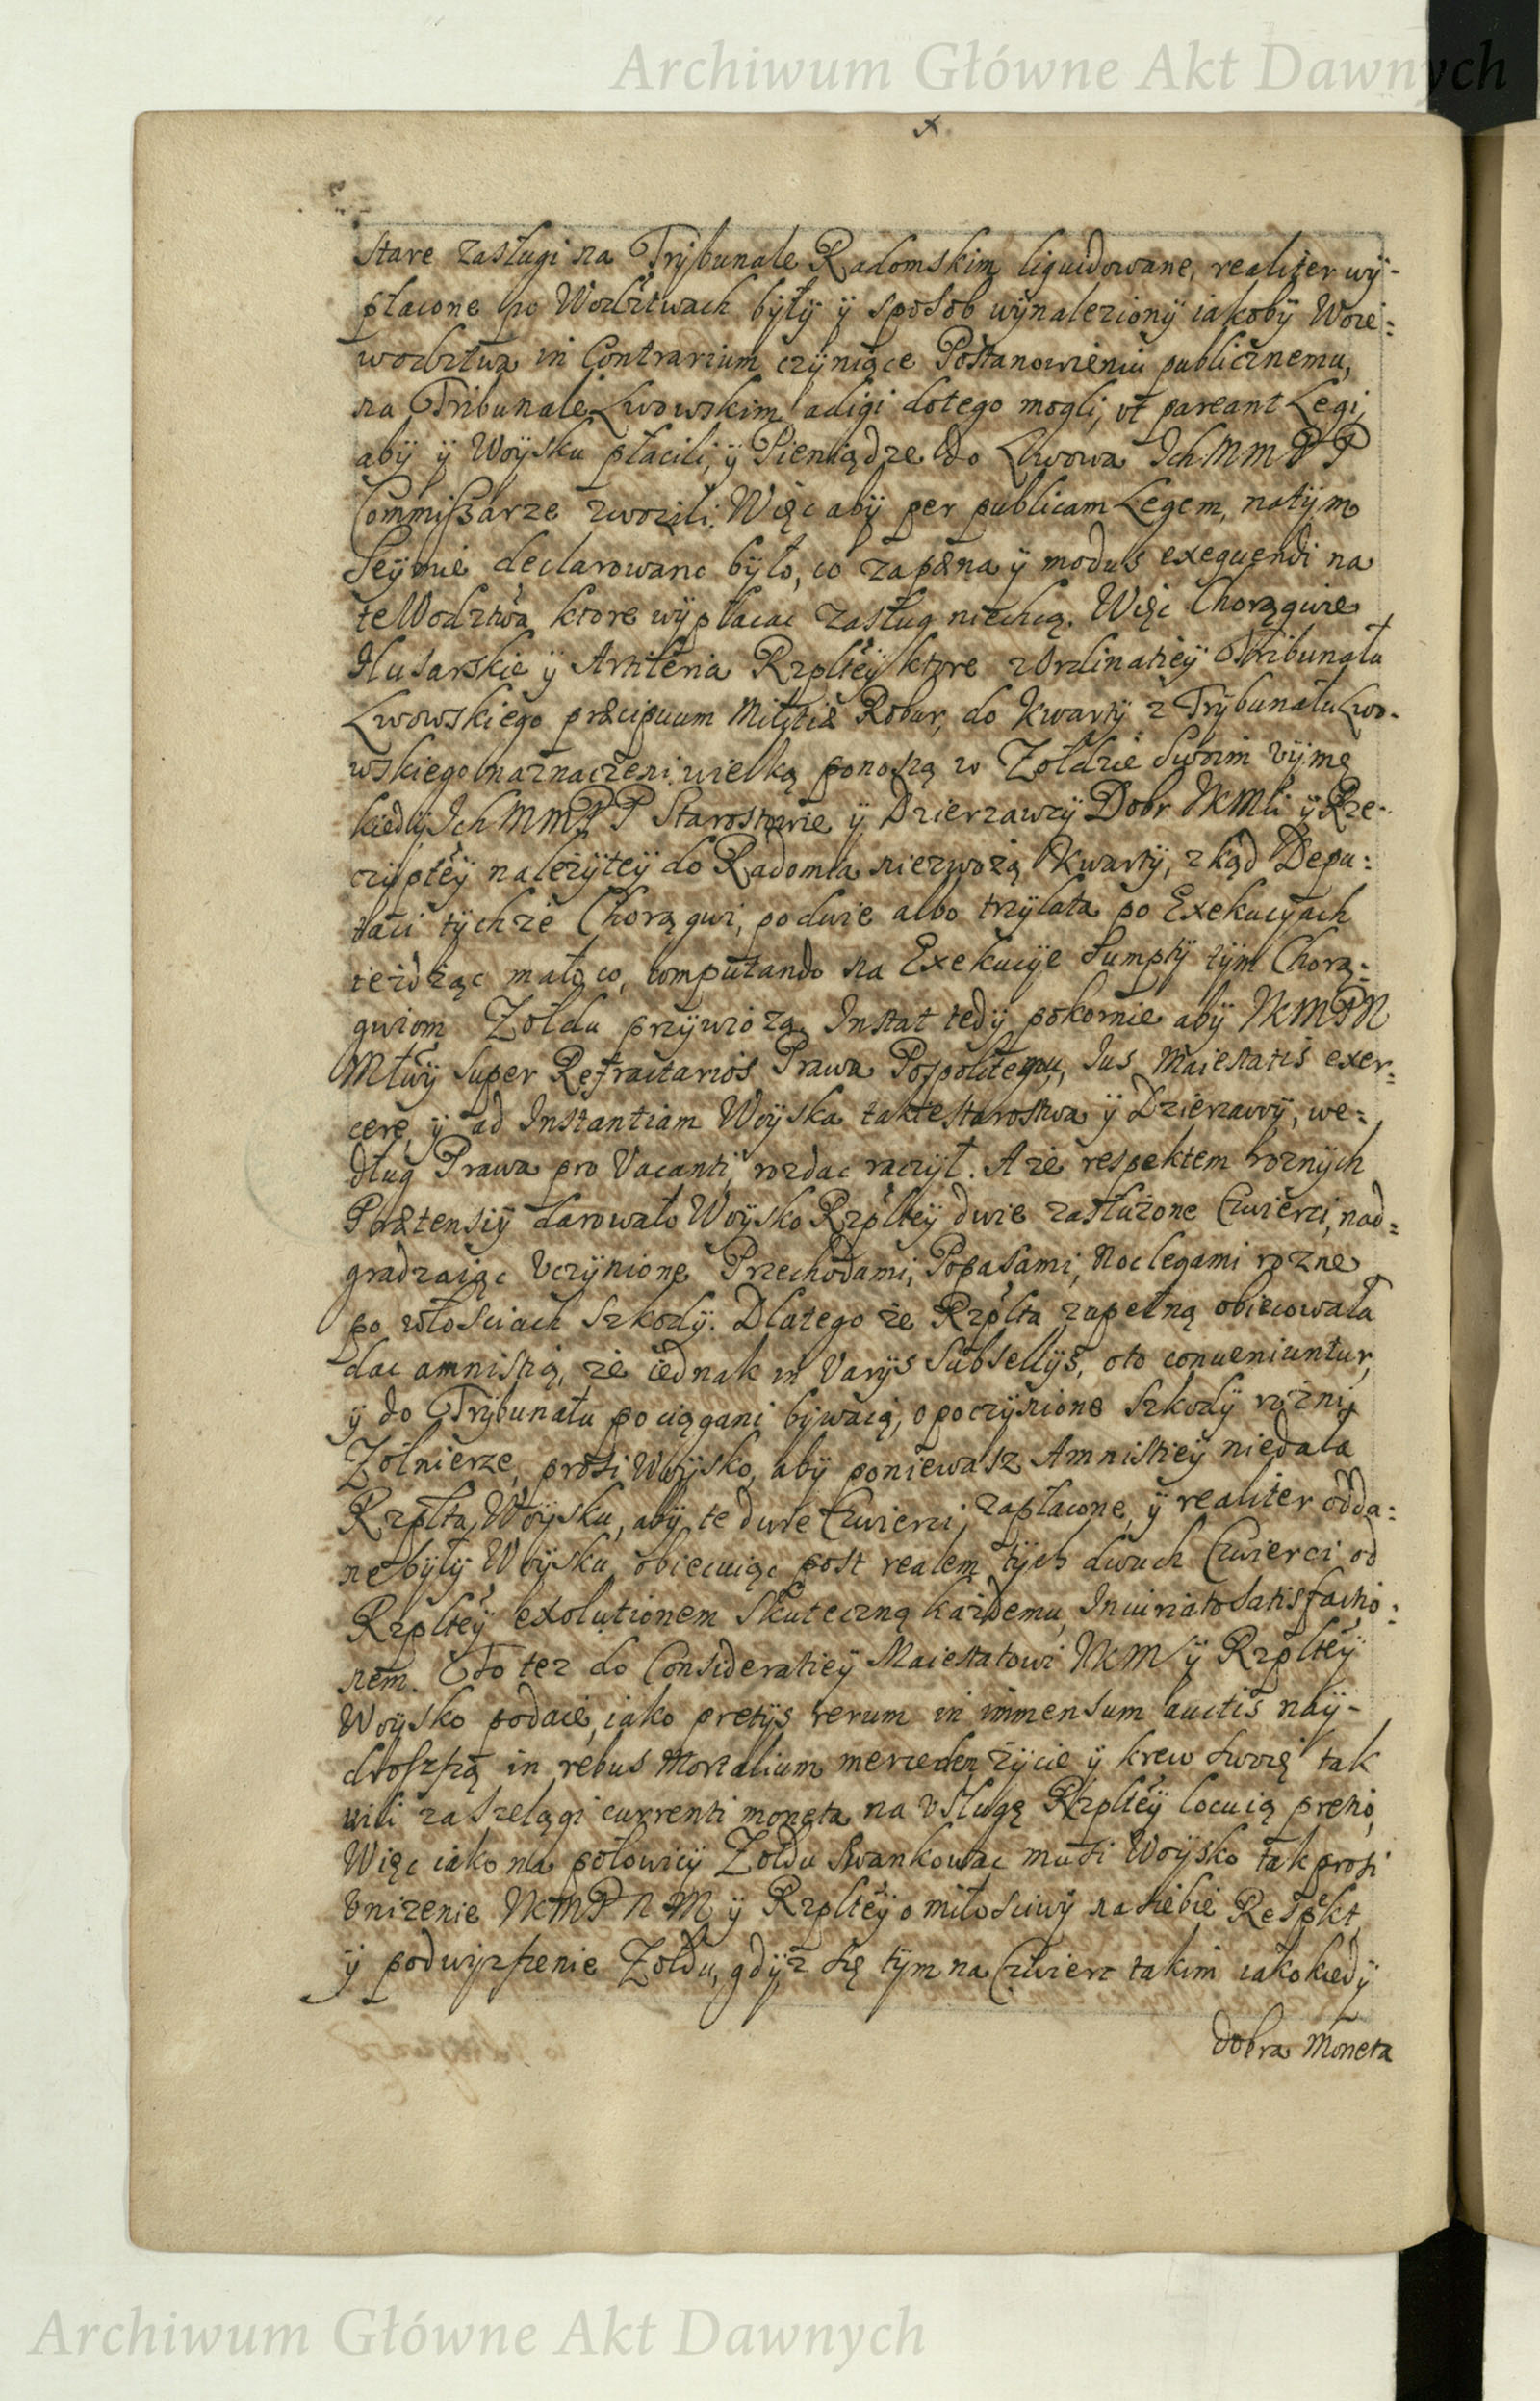 Archiwum Główne Akt Dawnych
stare zasługi na Trÿbunale Radomskim liquidowane, realiter wÿ-
płacone po Wodztwach bÿłÿ ÿ sposob wÿnalezionÿ iakobÿ Woie=
wodztwa in Contrarium czÿniące Postanowieniu publicznemu,
na Tribunale Lwowskim adigi dotego mogli, vt pareant Legi,
abÿ ÿ Woÿsku płacili, ÿ Pieniądze do Lwowa Ich M M P P
Commißarze zwozili. Więc abÿ per publicam Legem, natÿm
Seÿmie declarowano bÿło, co za pæna ÿ modus exequendi na
te Wodztwa ktore wÿpłacac zasług niechcą. Więc Chorągwie
Husarskie ÿ Artileria Rzplteÿ ktore z Ordinatieÿ Tribunału
Lwowskiego præcipuum Militiæ Robur, do Kwartÿ z Trÿbunału Lwo-
wskiego naznaczeni wielką ponoszą w Zołdzie Swoim vÿmę
kiedÿ Ich M M P P Starostowie ÿ Dzierzawcÿ Dobr JKMci ÿ Rze-
czÿplteÿ nalezÿteÿ do Radomia niezwożą Kwartÿ, z kąd Depu=
taci tÿchze Chorągwi, podwie albo trzÿ lata po Exekucÿach
ieżdżąc mało co, computando na Exekucÿe Sumptÿ tÿm Chorą=
gwiom Zołdu przÿwiozą. Instat tedÿ pokornie abÿ JKMPN
Młwÿ super Refractarios Prawa Pospolitego, Ius Maiestatis exer=
cere, ÿ ad Instantiam Woÿska takie starostwa ÿ Dzierzawÿ, we=
dług Prawa pro Vacanti, rozdac raczÿł. A ze respektem roznÿch
Prætensiÿ darowało Woÿsko Rzpltеÿ dwie zasłużone Cwierci, nad=
gradzaiąc vczÿnione Przechodami, Popasami, Noclegami rozne
po włosciach szkodÿ. Dlatego że Rzplta zapełną obiecowała
dac amnistią, ze iednak in Varijs Subsellijs, oto conueniuntur,
ÿ do Trÿbunału pociągani bÿwaią, o poczÿnione szkodÿ rożni
Zołnierze, prosi Woÿsko, abÿ poniewasz Amnistieÿ niedała
Rzplta, Woÿsku, abÿ te dwie Cwierci, zapłacone, ÿ realiter odda=
ne bÿłÿ Woÿsku, obiecuiąc post realem tÿch dwuch Cwierci od
Rzpltеÿ exolutionem skuteczną każdemu Iniuriato Satisfactio=
nem. To tez do Consideratieÿ Maiestatowi JKM ÿ Rzpltеÿ
Woÿsko podaie, iako pretijs rerum in immensum auctis naÿ-
droższą in rebus Mortalium mercedem żÿcie ÿ krew swoię tak
vili za szelągi currenti moneta na vsługę Rzpltеÿ locuią pretio,
Więc iako na połowicÿ Zołdu szwankowac musi Woÿsko tak prosi
vnizenie JKMPNM ÿ Rzpltеÿ o miłosciwÿ na siebie Respekt
ÿ podwÿzszenie Zołdu, gdÿz się tÿm na Cwierc takim iako kiedÿ
dobra Moneta
Archiwum Główne Akt Dawnych